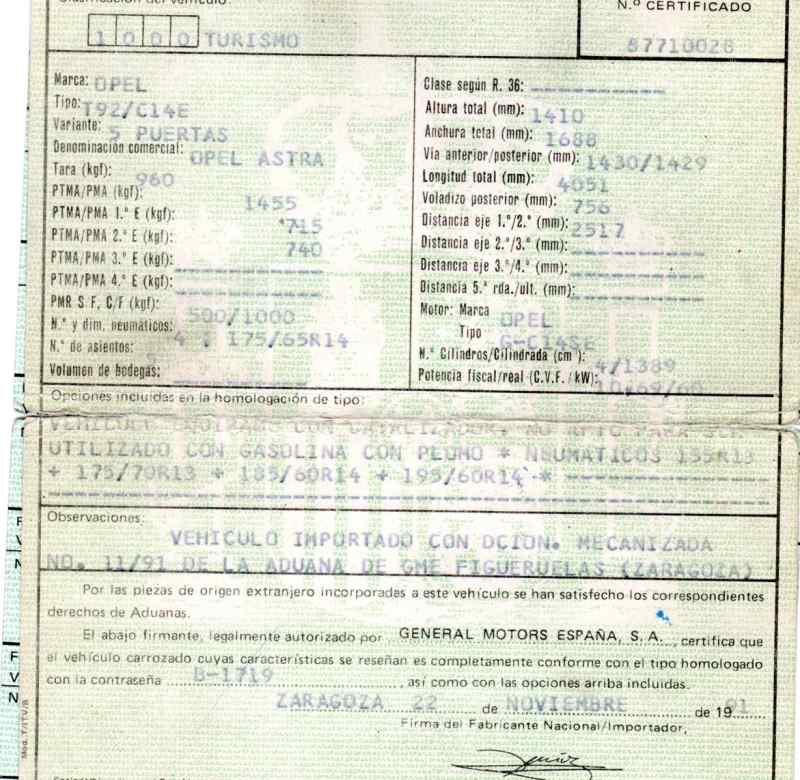 Clasificación del vehículo:
N.º CERTIFICADO
1000 TURISMO
87710028
Marca: OPEL
Tipo: T92/C14E
Variante: 5 PUERTAS
Denominación comercial: OPEL ASTRA
Tara (kgf): 960
PTMA/PMA (kgf): 1455
PTMA/PMA 1.º E (kgf): 715
PTMA/PMA 2.º E (kgf): 740
PTMA/PMA 3.º E (kgf): -------------
PTMA/PMA 4.º E (kgf): -------------
PMR S F, C/F (kgf): 500/1000
N.º y dim. neumáticos: 4 : 175/65R14
N.º de asientos: 5
Volumen de bodegas: -------------
Clase según R. 36: -------------
Altura total (mm): 1410
Anchura total (mm): 1688
Vía anterior/posterior (mm): 1430/1429
Longitud total (mm): 4051
Voladizo posterior (mm): 756
Distancia eje 1.º/2.º (mm): 2517
Distancia eje 2.º/3.º (mm): -------------
Distancia eje 3.º/4.º (mm): -------------
Distancia 5.ª rda./ult. (mm): -------------
Motor: Marca OPEL
Tipo G-C14SE
N.º Cilindros/Cilindrada (cm³): 4/1389
Potencia fiscal/real (C.V.F./kW): 10,69/60
Opciones incluidas en la homologación de tipo:
VEHICULO EQUIPADO CON CATALIZADOR, NO APTO PARA SER
UTILIZADO CON GASOLINA CON PLOMO + NEUMATICOS 155R13
+ 175/70R13 + 185/60R14 + 195/60R14 -*- -------------
Observaciones:
VEHICULO IMPORTADO CON DCION. MECANIZADA
NO. 11/91 DE LA ADUANA DE GME FIGUERUELAS (ZARAGOZA)
Por las piezas de origen extranjero incorporadas a este vehículo se han satisfecho los correspondientes
derechos de Aduanas.
El abajo firmante, legalmente autorizado por GENERAL MOTORS ESPAÑA, S.A., certifica que
el vehículo carrozado cuyas características se reseñan es completamente conforme con el tipo homologado
con la contraseña B-1719, así como con las opciones arriba incluidas.
ZARAGOZA 22 de NOVIEMBRE de 1991
Firma del Fabricante Nacional/Importador,
Mod. T/ITV/B
F
V
N
F
V
N